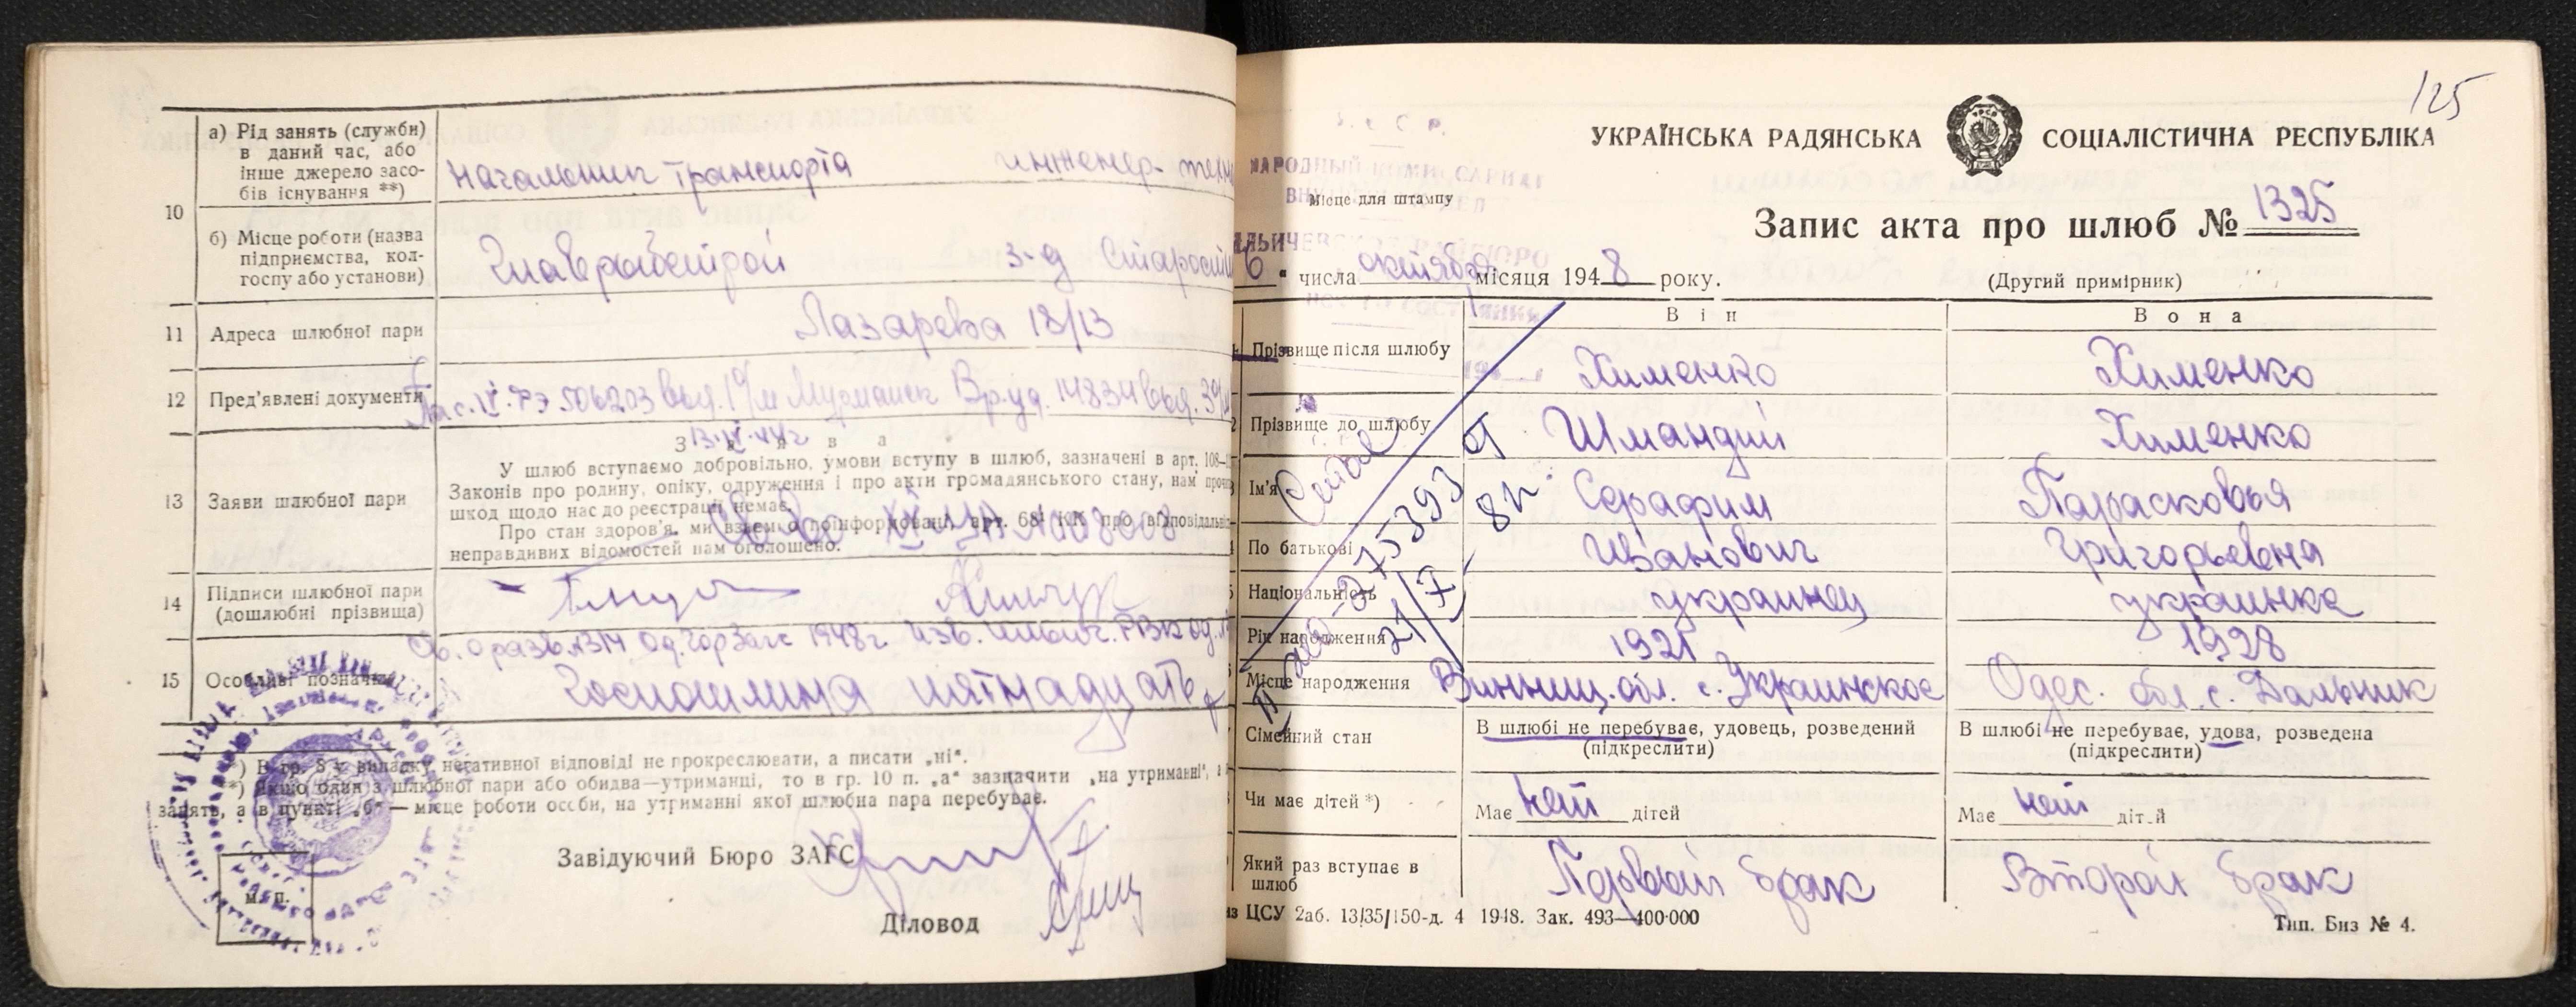 10
а) Рід занять (служби)
в даний час, або
інше джерело засо-
бів існування **)
начальник транспорта
инженер-
б) Місце роботи (назва
підприємства, кол-
госпу або установи)
Главрыбстрой
з-д
11 Адреса шлюбної пари
Лазарева 18/13
12 Пред'явлені документи
506203 выд. г/м Мурманск Вр. уд. 14834 выд.
13 Заяви шлюбної пари
З а я в а
У шлюб вступаємо добровільно, умови вступу в шлюб, зазначені в арт. 108–
Законів про родину, опіку, одруження і про акти громадянського стану, нам
шкод щодо нас до реєстрації немає.
Про стан здоров'я, ми взаємно поінформовані, арт. 68 КК про
неправдивих відомостей нам оголошено.
14 Підписи шлюбної пари
(дошлюбні прізвища)
Св. о разв. 1314 Од. гор Загс 1948 г
15 Особливі позначки
Госпошлина пятнадцать
*) В гр. 8 у випадку негативної відповіді не прокреслювати, а писати „ні“.
**) Якщо один з шлюбної пари або обидва—утриманці, то в гр. 10 п. „а“ зазначити „на утриманні“,
занять, а в пункті „б“ — місце роботи особи, на утриманні якої шлюбна пара перебуває.
Завідуючий Бюро ЗАГС
м. п.
Діловод
125
УКРАЇНСЬКА РАДЯНСЬКА СОЦІАЛІСТИЧНА РЕСПУБЛІКА
НАРОДНЫЙ КОМИССАРИАТ
Місце для штампу
Запис акта про шлюб № 1325
6 “ числа октября місяця 1948 року.
(Другий примірник)
Він
Вона
Прізвище після шлюбу
Хименко
Хименко
Прізвище до шлюбу
Шмандий
Хименко
Ім'я
Серафим
Парасковья
По батькові
Иванович
Григорьевна
Національність
украинец
украинка
Рік народження
1921
1928
Місце народження
Винниц. обл. с. Украинское
Одес. обл. с. Дальник
Сімейний стан
В шлюбі не перебуває, удовець, розведений
(підкреслити)
В шлюбі не перебуває, удова, розведена
(підкреслити)
Чи має дітей *)
Має нет дітей
Має нет дітей
Який раз вступає в
шлюб
Первый брак
Второй брак
ЦСУ 2аб. 13/35/150-д. 4 1948. Зак. 493—400·000
Тип. Биз № 4.